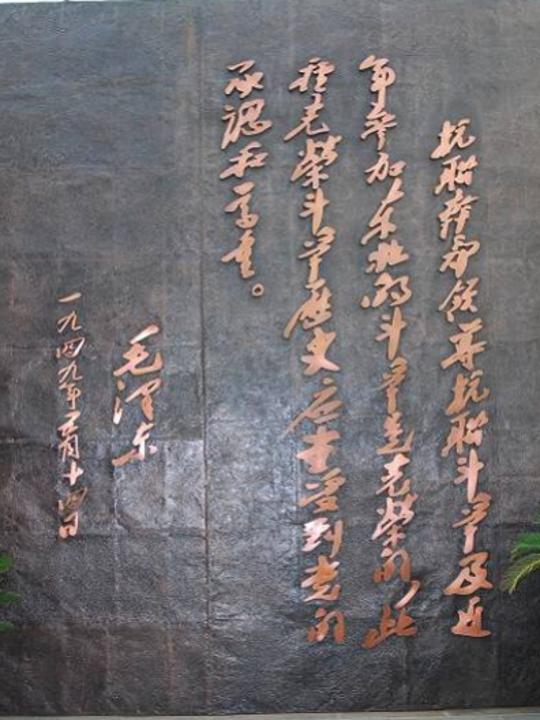 抗联干部领导抗联斗争及近
年参加东北的斗争是光荣的，此
种光荣斗争历史应当受到党的
承認和尊重。
毛澤东
一九四九年二月十四日